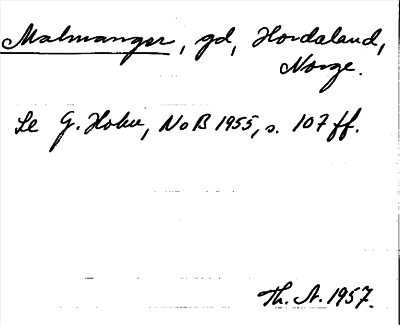 Malmanger, gd, Hordaland,
Norge.
Se G. Holm, NoB 1955, s. 107 ff.
Th. A. 1957.